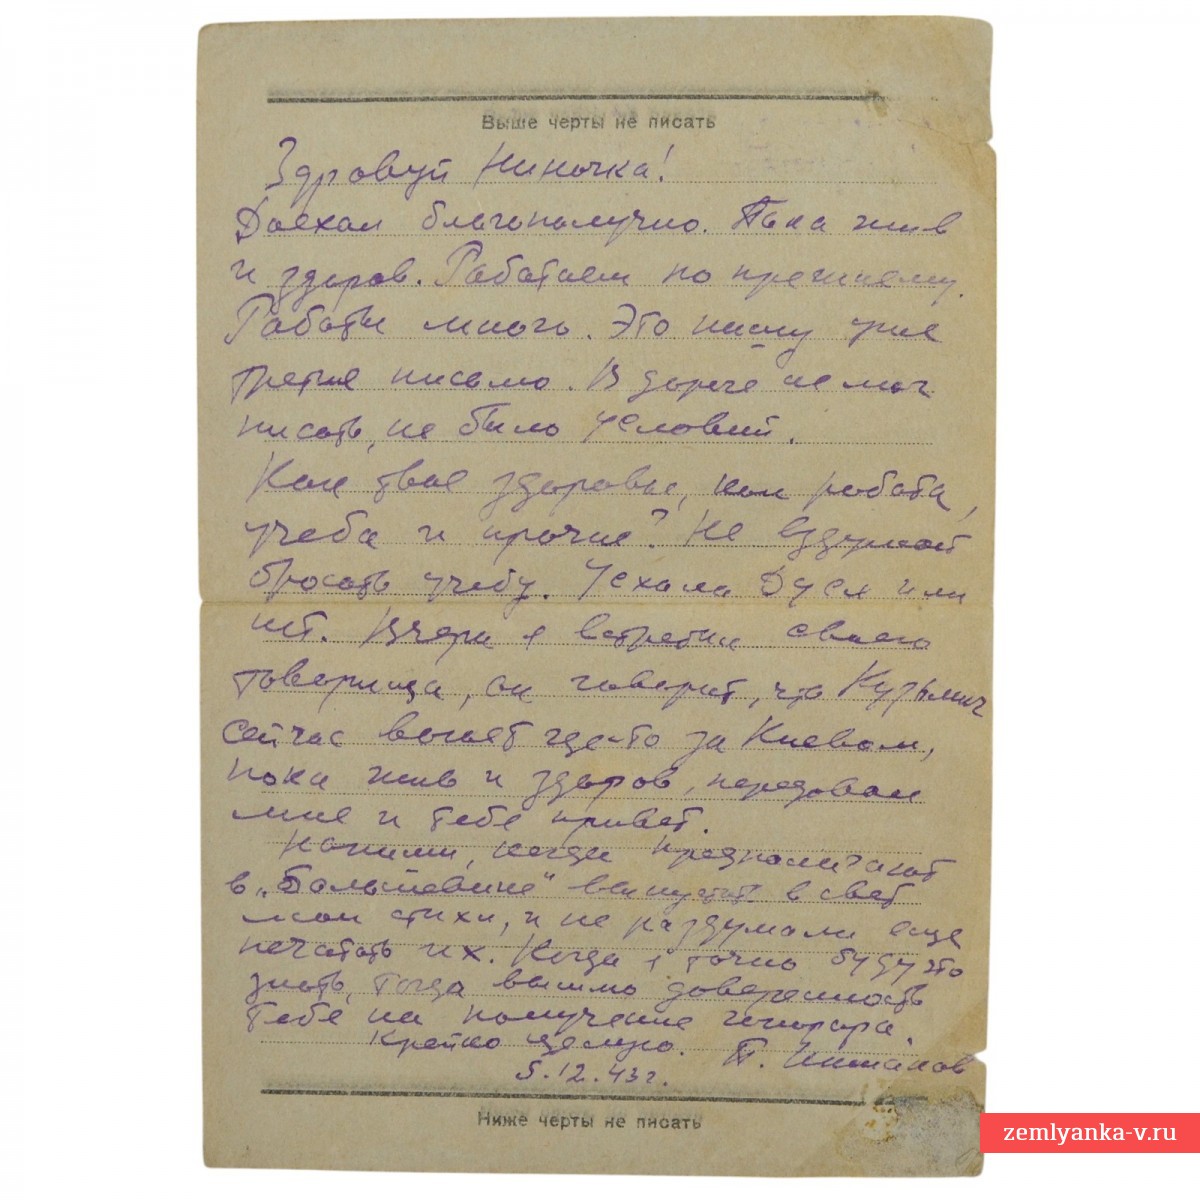 Выше черты не писать
Здравуй Ниночка!
Доехал благополучно. Пока жив
и здоров. Работаем по прежнему.
Работы много. Это пишу уже
третье письмо. В дороге не мог
писать, не было условий.
Как твое здоровье, как работа,
учеба и прочие? Не вздумай
бросать учебу. Уехала Дуся или
нет. Вчера я встретил своего
товарища, он говорит, что Кузьмич
сейчас воюет где-то за Киевом,
пока жив и здоров, передовал
мне и тебе привет.
когда предполагают
в „Большевике" выпустить в свет
мои стихи, и не раздумали еще
печатать их. Когда я точно буду это
знать, тогда вышлю доверенность
тебе на получение гонорара.
Крепко целую. П.
5.12.43 г.
Ниже черты не писать
zemlyanka-v.ru